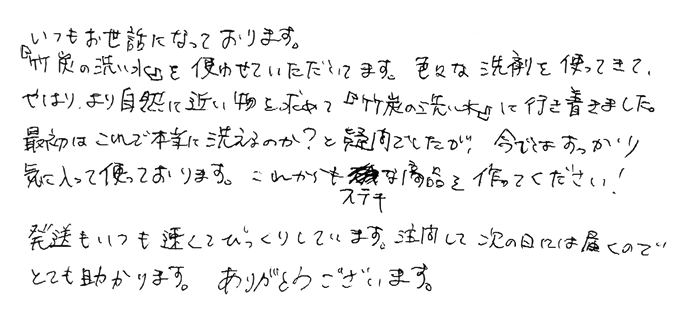 いつもお世話になっております。
『竹炭の洗い水』を使わせていただいてます。色々な洗剤を使ってきて、
やはり、より自然に近い物を求めて『竹炭の洗い水』に行き着きました。
最初はこれで本当に洗えるのか？と疑問でしたが、今ではすっかり
気に入って使っております。これからもステキな商品を作ってください！
発送もいつも速くてびっくりしています。注問して次の日には届くので
とても助かります。ありがとうございます。